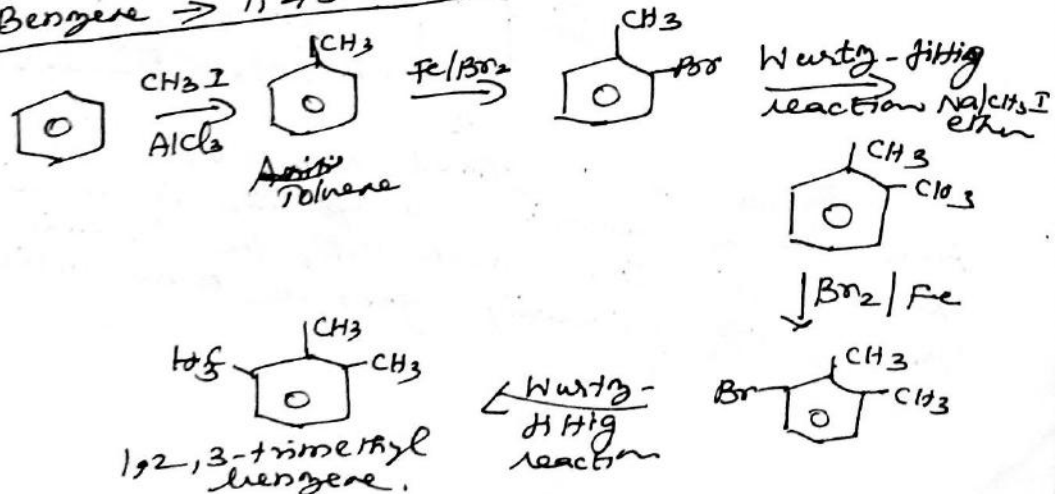 Benzene →
CH3
CH3 I
AlCl3
Toluene
Fe/Br2
CH3
Br
Wurtz-fittig
reaction Na/CH3I
ether
CH3
Br2 | Fe
CH3
CH3
Br
Wurtz-
fittig
reaction
CH3
CH3
H3C
1,2,3-trimethyl
benzene.